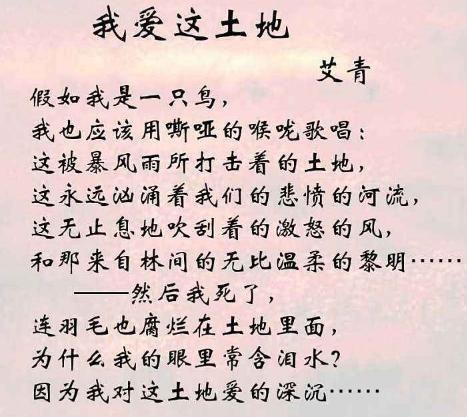 我爱这土地
艾青
假如我是一只鸟，
我也应该用嘶哑的喉咙歌唱：
这被暴风雨所打击着的土地，
这永远汹涌着我们的悲愤的河流，
这无止息地吹刮着的激怒的风，
和那来自林间的无比温柔的黎明……
——然后我死了，
连羽毛也腐烂在土地里面，
为什么我的眼里常含泪水？
因为我对这土地爱的深沉……